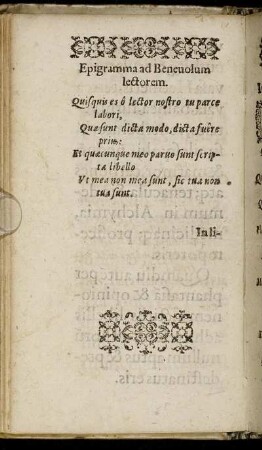 Epigramma ad Beneuolum
lectorem.
Quisquis es ô lector nostro tu parce
labori,
Quæ sunt dicta modo, dicta fuêre
prius:
Et quæcunque meo paruo sunt scrip-
ta libello
Vt mea non mea sunt, sic tua non
tua sunt.
In li-